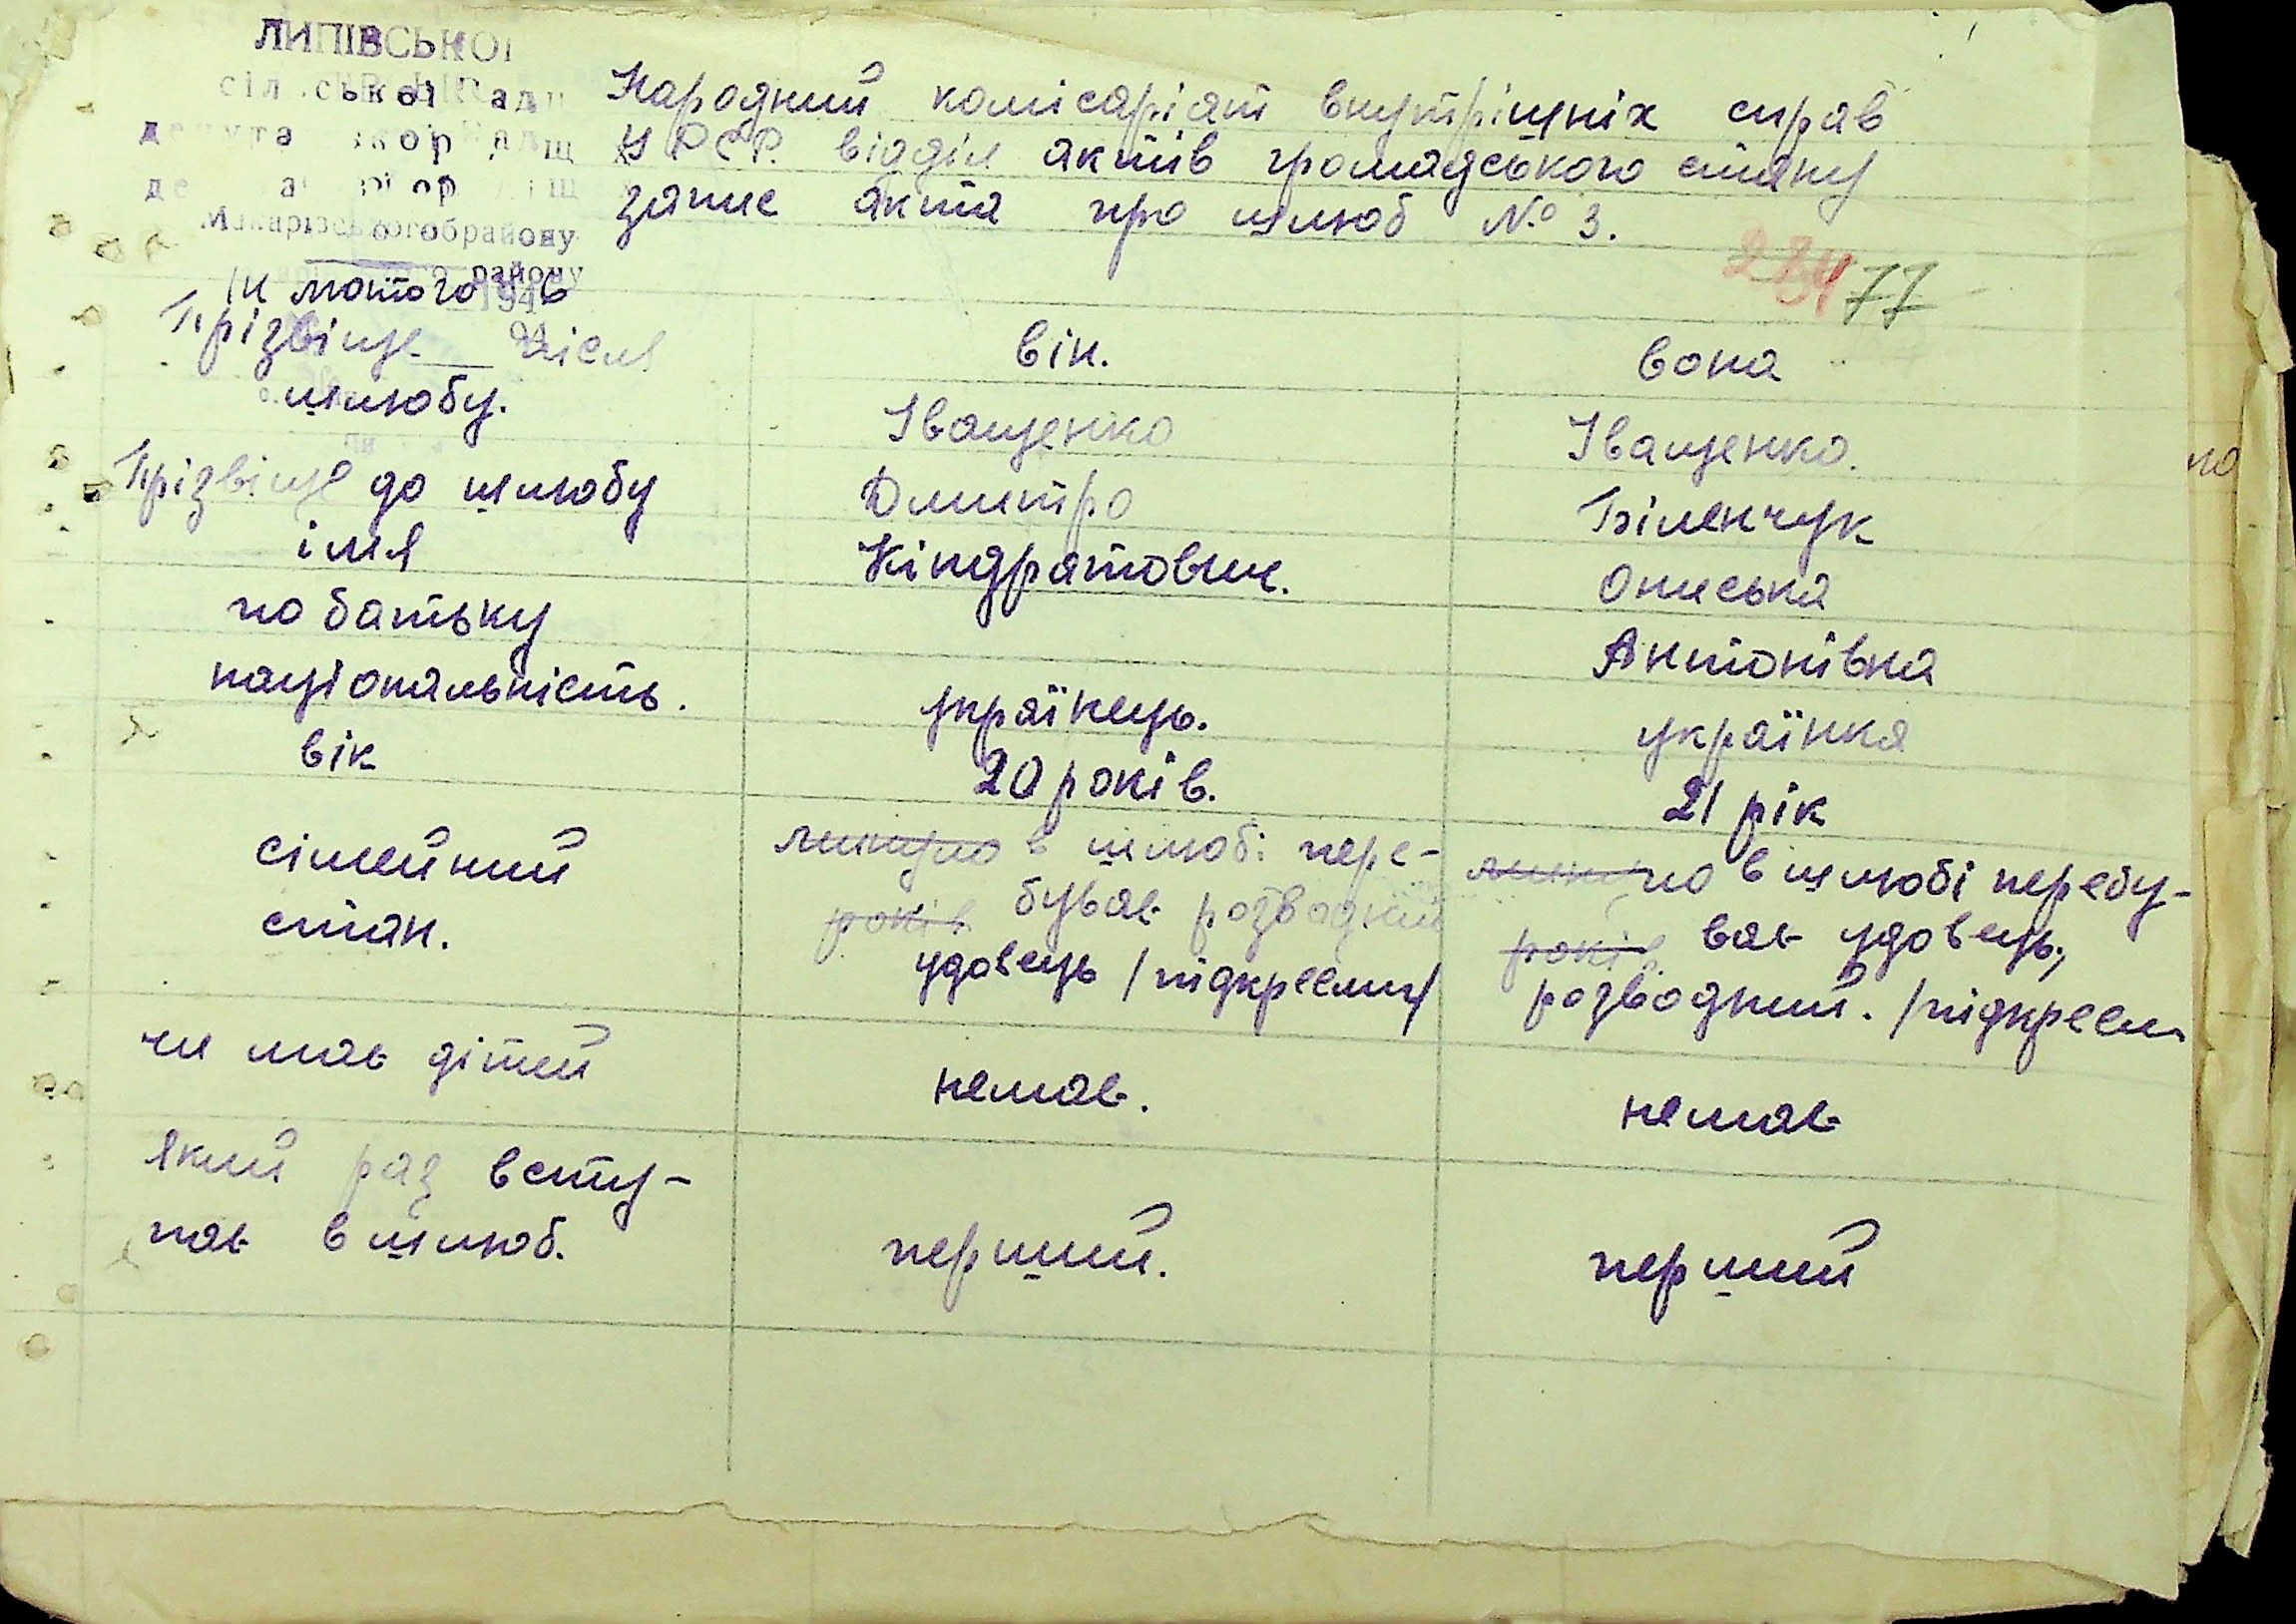 ЛИПІВСЬКОЇ
сільської Ради
Макарівського району
району
14 лютого 1946
Народний комісаріят внутрішніх справ
УРСР. відділ актів громадського стану
запис акта про шлюб № 3.
284 77
Прізвіще після
шлюбу.
він.
вона
Іващенко
Іващенко.
Прізвіще до шлюбу
Дмитро
Біленчук
імя
Кіндратович.
Ониська
по батьку
Антонівна
національність.
українець.
українка
вік
20 років.
21 рік
сімейний
стан.
в шлюбі пере-
років буває розводний
удовець /підкреслит/
по в шлюбі перебу-
років ває удовець,
розводний. /підкресли
чи має дітей
немає.
немає
який раз всту-
пає в шлюб.
перший.
перший